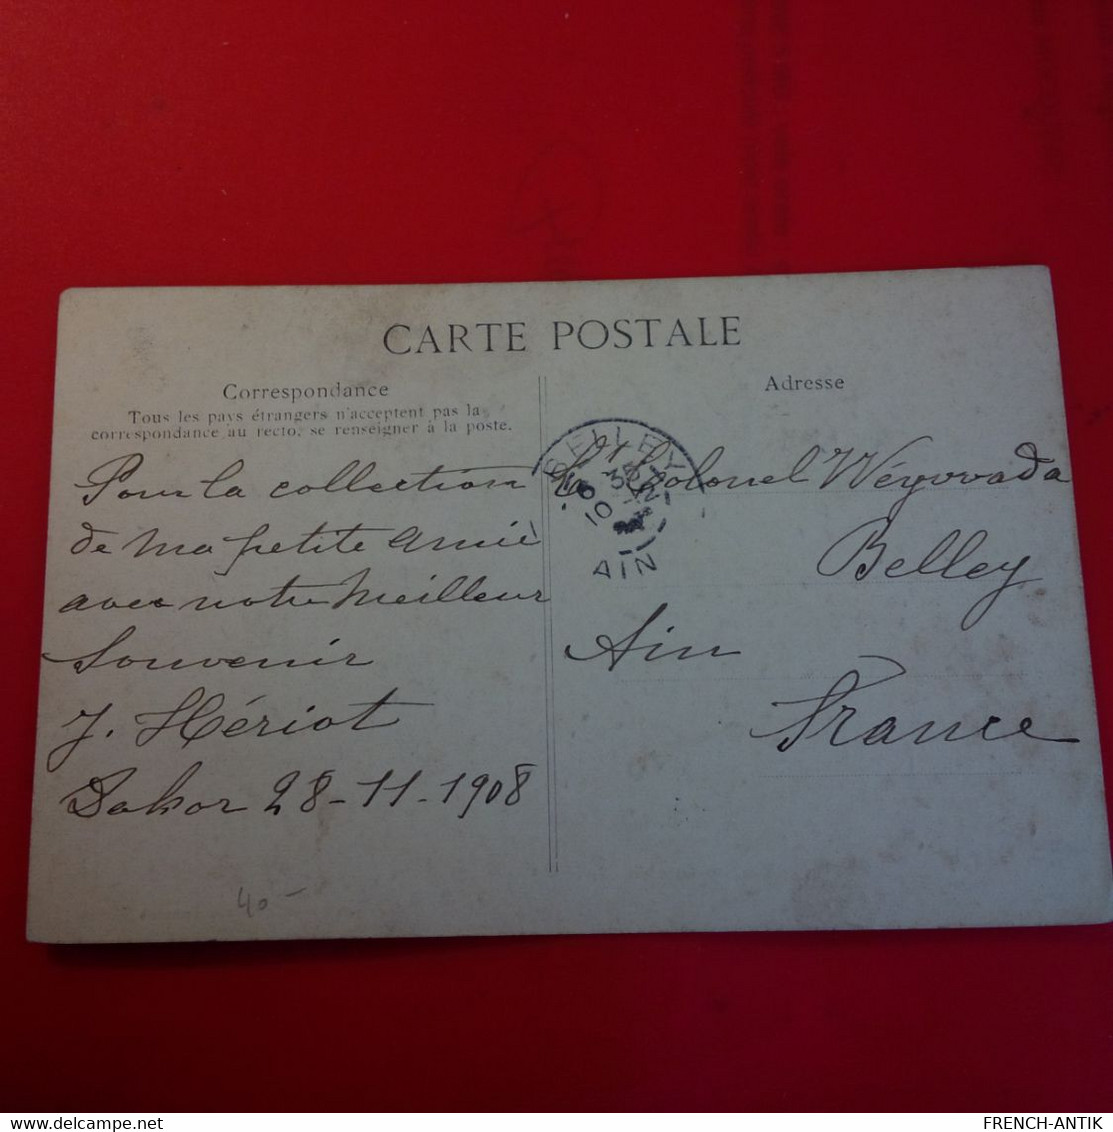 CARTE POSTALE
Correspondance
Tous les pays étrangers n'acceptent pas la
correspondance au recto, se renseigner à la poste.
Pour la collection
de ma petite amie
avec notre Meilleur
Souvenir
J. Hériot
Dakar 28-11-1908
40-
Adresse
Lt Colonel
Belley
Ain
France
BELLEY
AIN
www.delcampe.net
FRENCH-ANTIK